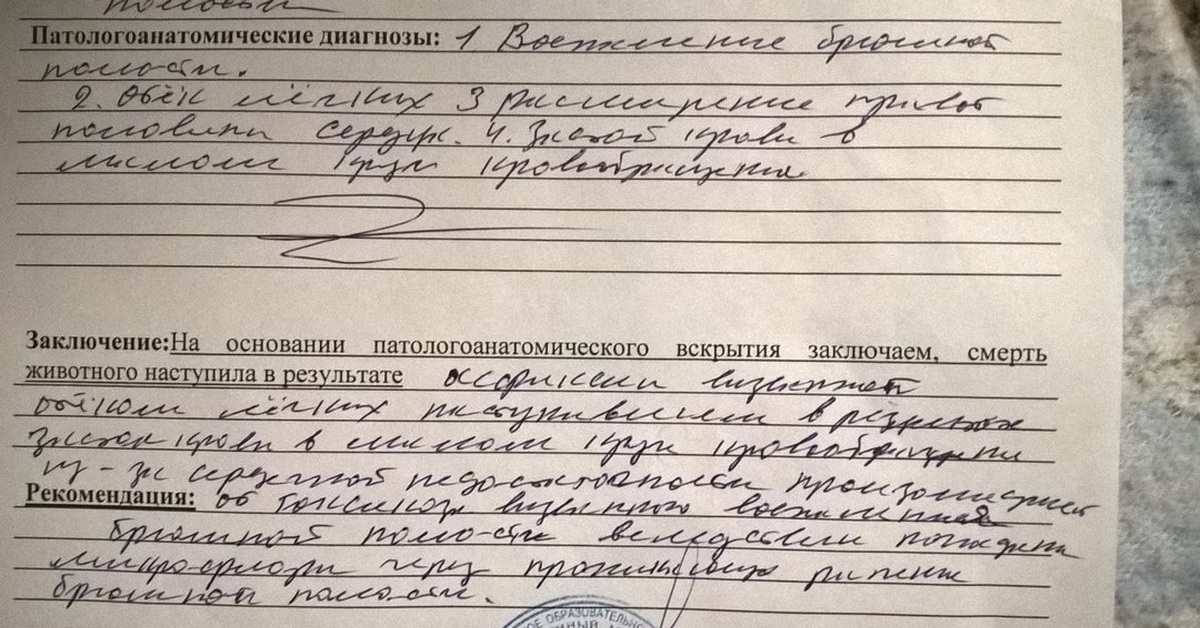 полости
Патологоанатомические диагнозы: 1 Воспаление брюшной
полости.
2. Отёк лёгких 3 расширение правой
половины сердца. 4. Застой крови в
малом круге кровообращения
Заключение: На основании патологоанатомического вскрытия заключаем, смерть
животного наступила в результате асфиксии вызванной
отёком лёгких наступившем в результате
застоя крови в малом круге кровообращения
из-за сердечной недостаточности произошедшей
Рекомендация: от токсикоза вызванного воспалением
брюшной полости вследствии попадания
микрофлоры через проникающую ранение
брюшной полости.
ОЕ ОБРАЗОВАТЕЛЬНО